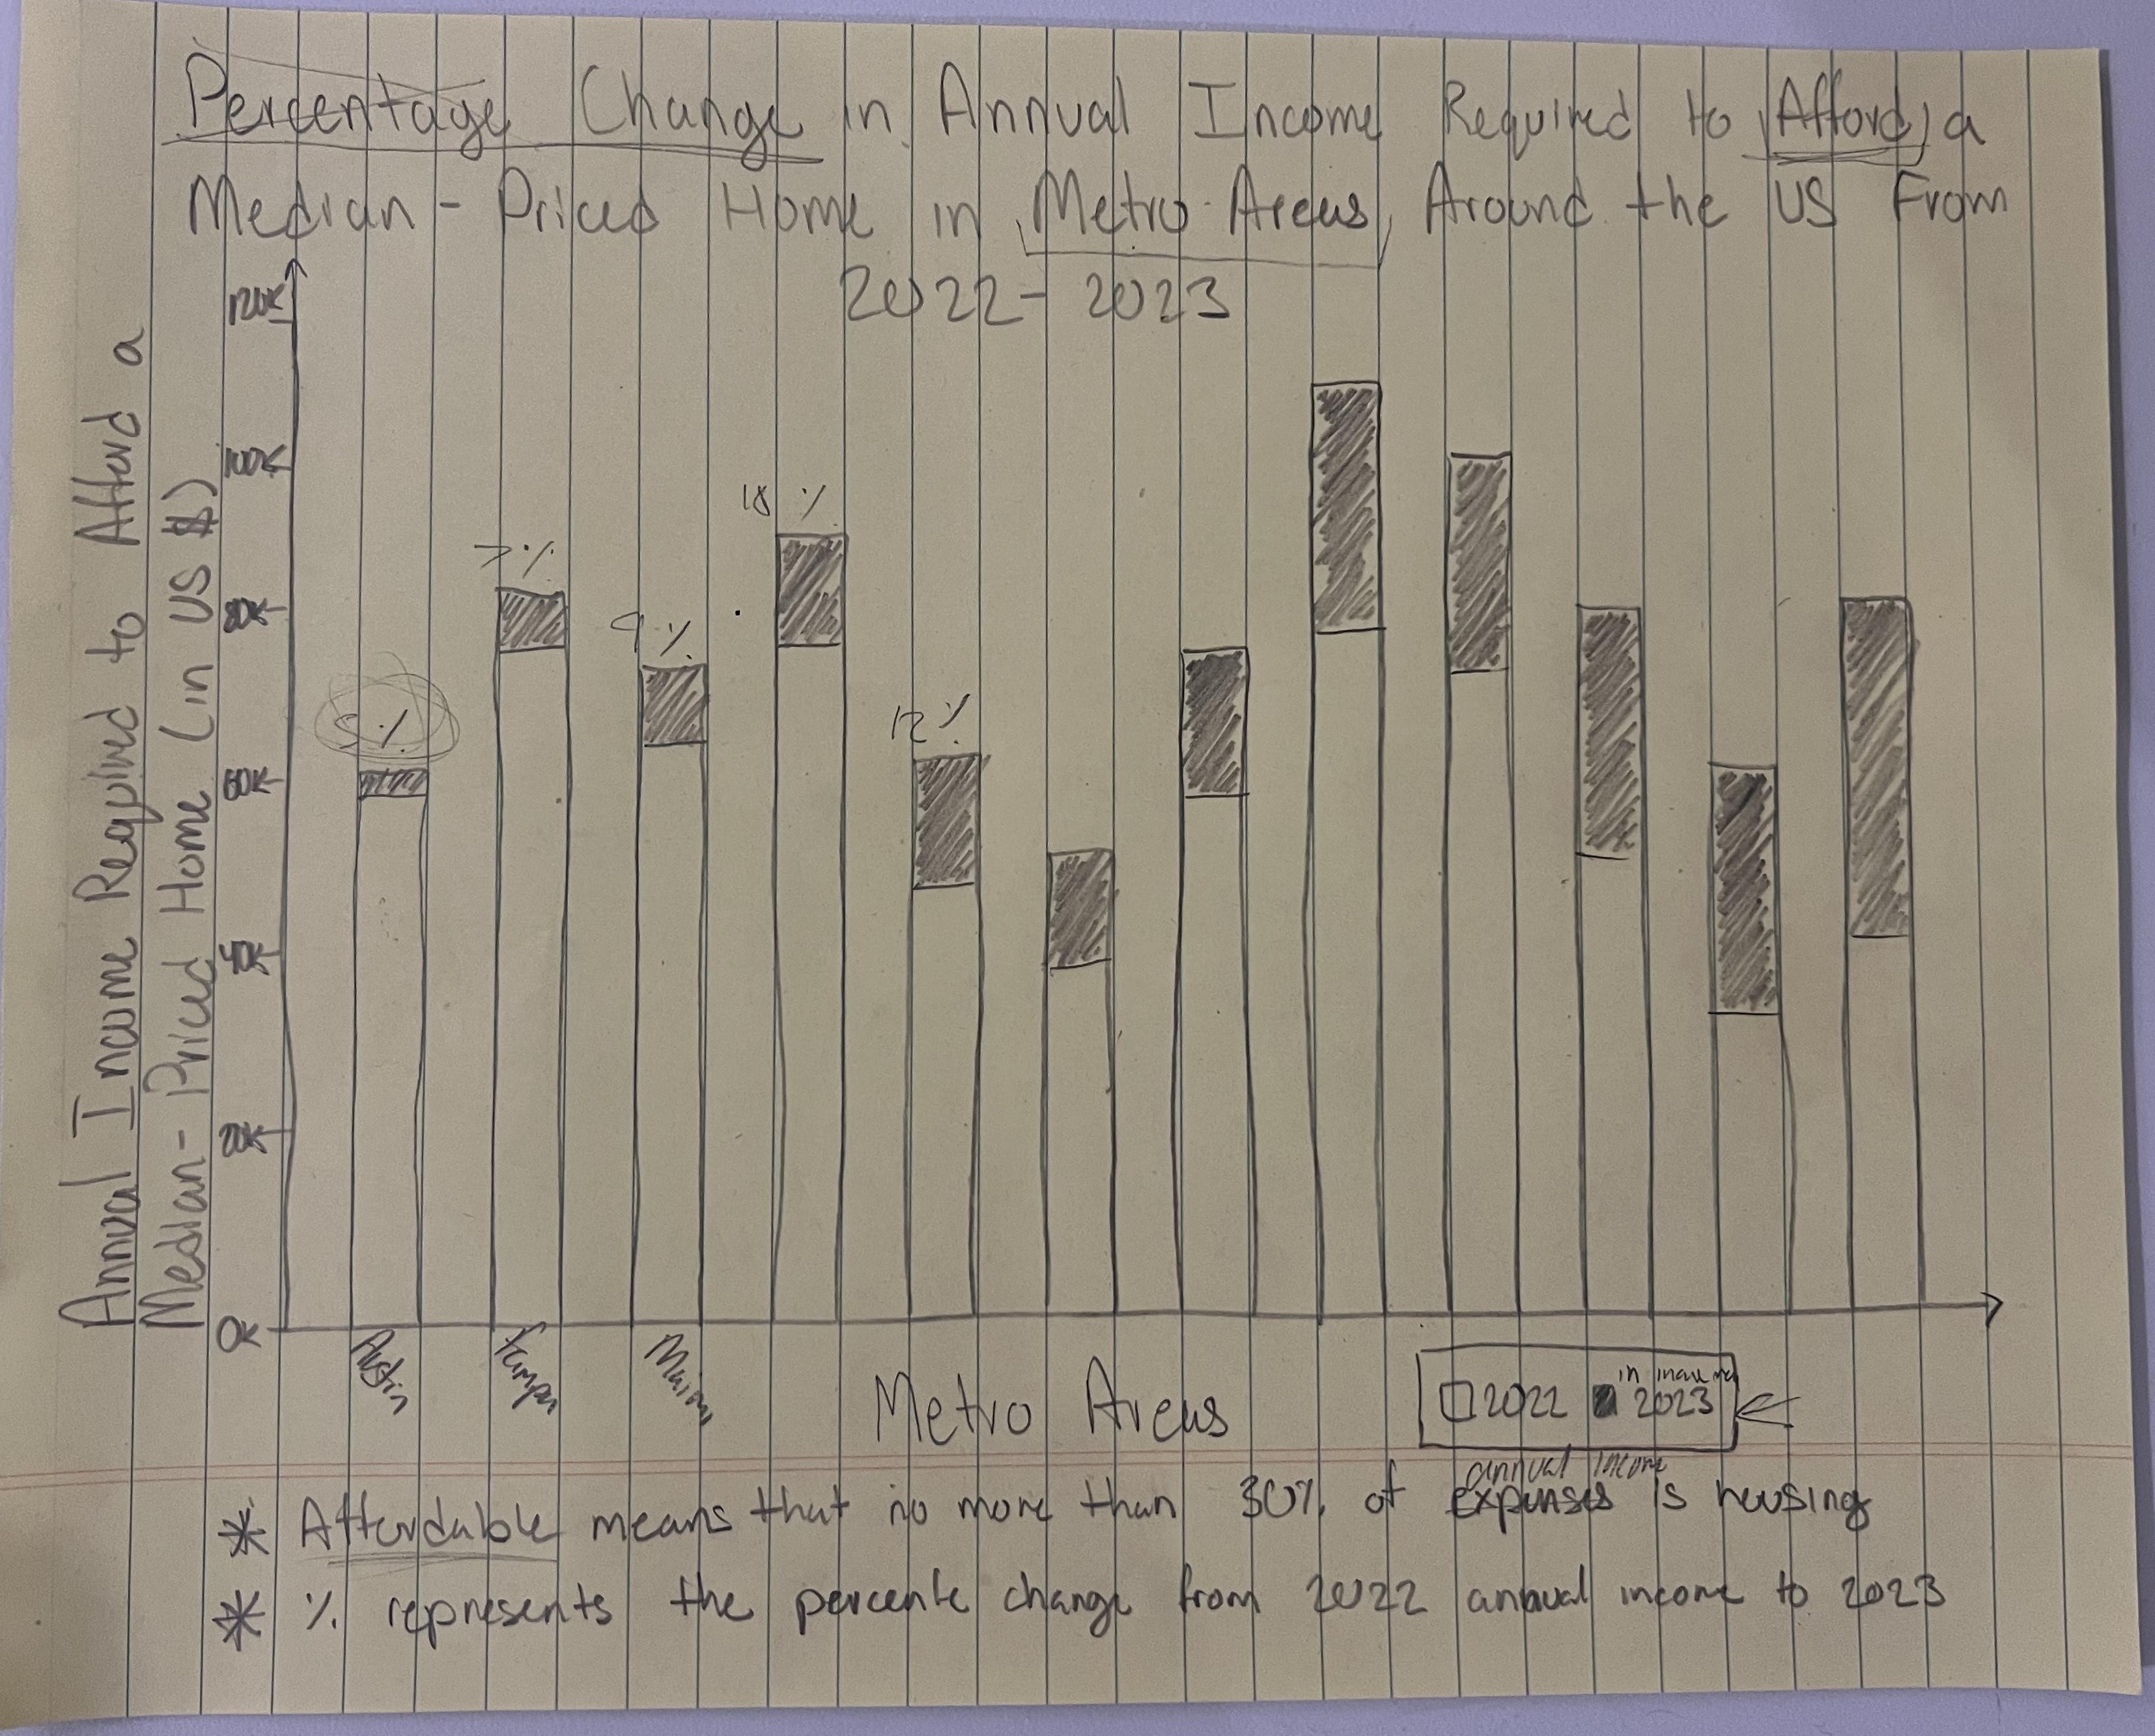 Percentage Change in Annual Income Required to Afford a
Median-Priced Home in Metro Areas Around the US From
2022-2023
Annual Income Required to Afford a
Median-Priced Home (in US $)
120K
100K
80K
60K
40K
20K
0K
5%
7%
9%
18%
12%
Austin
Tampa
Metro Areas
2022
2023
annual income
* Affordable means that no more than 30% of expenses is housing
* % represents the percente change from 2022 annual income to 2023